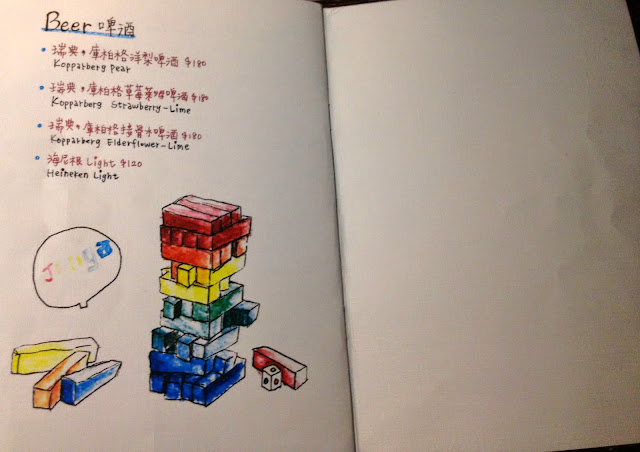 Beer 啤酒
瑞典，庫柏格洋梨啤酒 $180
Kopparberg Pear
瑞典，庫柏格草莓萊姆啤酒 $180
Kopparberg Strawberry-Lime
瑞典，庫柏格接骨木啤酒 $180
Kopparberg Elderflower-Lime
海尼根 Light $120
Heineken Light
Jenga